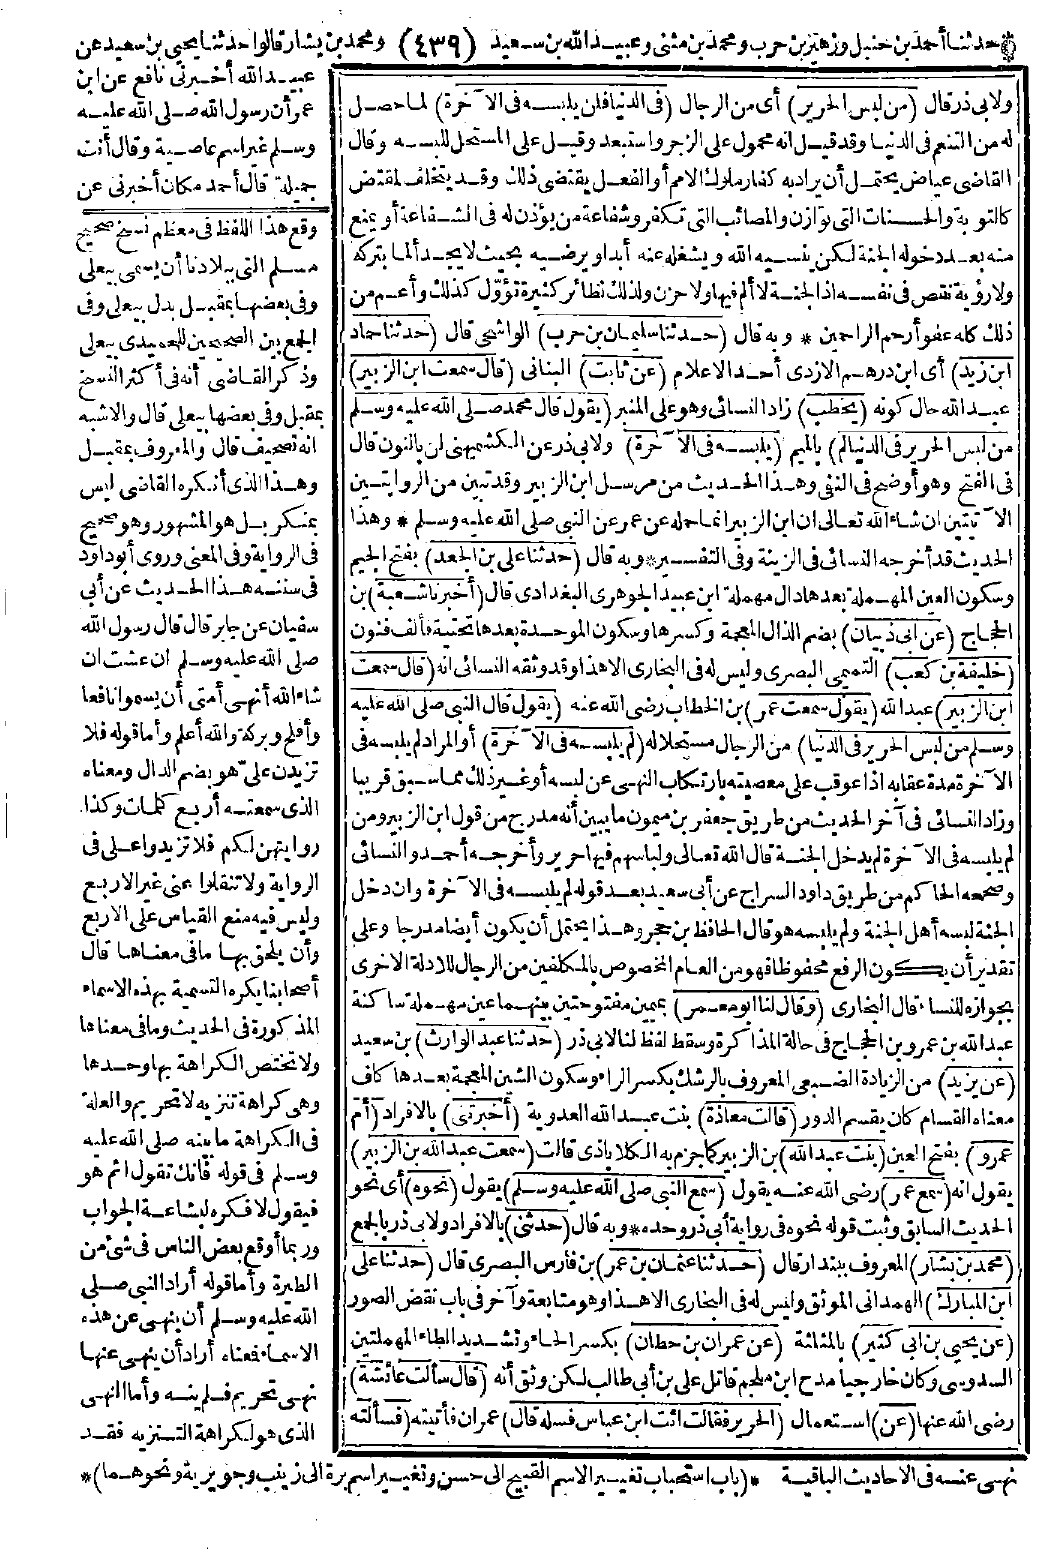 حدثنا أحمد بن حنبل وزهير بن حرب ومحمد بن مثنى وعبيد الله بن سعيد (٤٣٩) ومحمد بن بشار قالوا حدثنا يحيى بن سعيد عن
عبيد الله أخبرنى نافع عن ابن
عمر أن رسول الله صلى الله عليه
وسلم غير اسم عاصية وقال أنت
جميلة قال أحمد مكان أخبرنى عن
وقع هذا اللفظ فى معظم نسخ صحيح
مسلم التى ببلادنا أن يسمى بيعلى
وفى بعضها بمقبل بدل بيعلى وفى
الجمع بين الصحيحين للحميدى بيعلى
وذكر القاضى أنه فى أكثر النسخ
بمقبل وفى بعضها بيعلى قال والاشبه
انه تصحيف قال والمعروف بمقبل
وهذا الذى أنكره القاضى ليس
بمنكر بل هو المشهور وهو صحيح
فى الرواية وفى المعنى وروى أبو داود
فى سننه هذا الحديث عن أبى
سفيان عن جابر قال قال رسول الله
صلى الله عليه وسلم ان عشت ان
شاء الله أنهى أمتى أن يسموا نافعا
وأفلح وبركة والله أعلم وأما قوله فلا
تزيدن على هو بضم الدال ومعناه
الذى سمعته أربع كلمات وكذا
روايتهن لكم فلا تزيدوا على فى
الرواية ولا تنقلوا عنى غير الاربع
وليس فيه منع القياس على الاربع
وأن يلحق بها ما فى معناها قال
أصحابنا يكره التسمية بهذه الاسماء
المذكورة فى الحديث وما فى معناها
ولا تختص الكراهة بها وحدها
وهى كراهة تنزيه لا تحريم والعلة
فى الكراهة ما بينه صلى الله عليه
وسلم فى قوله فانك تقول اثم هو
فيقول لا فكره لبشاعة الجواب
وربما أوقع بعض الناس فى شئ من
الطيرة وأما قوله أراد النبى صلى
الله عليه وسلم أن ينهى عن هذه
الاسماء فمعناه أراد أن ينهى عنها
نهى تحريم فلم ينه وأما النهى
الذى هو لكراهة التنزيه فقد
ولابى ذر قال (من لبس الحرير) أى من الرجال (فى الدنيا فلن يلبسه فى الآخرة) لما حصل
له من التنعم فى الدنيا وقد قيل انه محمول على الزجر واستبعد وقيل على المستحل للبسه وقال
القاضى عياض يحتمل أن يراد به كفار ملوك الامم أو الفعل يقتضى ذلك وقد يتخلف لمقتض
كالتوبة والحسنات التى توازن والمصائب التى تكفر وشفاعة من يؤذن له فى الشفاعة أو يمنع
منه بعد دخوله الجنة لكن ينسيه الله ويشغله عنه أبدا ويرضيه بحيث لا يجد ألما بتركه
ولا رؤية نقص فى نفسه اذا الجنة لا ألم فيها ولا حزن ولذلك نظائر كثيرة تؤول كذلك وأعم من
ذلك كله عفو أرحم الراحمين * وبه قال (حدثنا سليمان بن حرب) الواشحى قال (حدثنا حماد
ابن زيد) أى ابن درهم الازدى أحد الاعلام (عن ثابت) البنانى (قال سمعت ابن الزبير)
عبد الله حال كونه (يخطب) زاد النسائى وهو على المنبر (يقول قال محمد صلى الله عليه وسلم
من لبس الحرير فى الدنيا لم) بالميم (يلبسه فى الآخرة) ولابى ذر عن الكشميهنى لن بالنون قال
فى الفتح وهو أوضح فى النفى وهذا الحديث من مرسل ابن الزبير وقد تبين من الروايتين
الآتيتين ان شاء الله تعالى ان ابن الزبير انما حمله عن عمر عن النبى صلى الله عليه وسلم * وهذا
الحديث قد أخرجه النسائى فى الزينة وفى التفسير * وبه قال (حدثنا على بن الجعد) بفتح الجيم
وسكون العين المهملة بعدها دال مهملة ابن عبيد الجوهرى البغدادى قال (أخبرنا شعبة) بن
الحجاج (عن أبى ذبيان) بضم الذال المعجمة وكسرها وسكون الموحدة بعدها تحتية فألف فنون
(خليفة بن كعب) التميمى البصرى وليس له فى البخارى الا هذا وقد وثقه النسائى انه (قال سمعت
ابن الزبير) عبد الله (يقول سمعت عمر) بن الخطاب رضى الله عنه (يقول قال النبى صلى الله عليه
وسلم من لبس الحرير فى الدنيا) من الرجال مستحلا له (لم يلبسه فى الآخرة) أو المراد لم يلبسه فى
الآخرة مدة عقابه اذا عوقب على معصيته بارتكاب النهى عن لبسه أو غير ذلك مما سبق قريبا
وزاد النسائى فى آخر الحديث من طريق جعفر بن ميمون ما يبين أنه مدرج من قول ابن الزبير ومن
لم يلبسه فى الآخرة لم يدخل الجنة قال الله تعالى ولباسهم فيها حرير وأخرجه أحمد والنسائى
وصححه الحاكم من طريق داود السراج عن أبى سعيد بعد قوله لم يلبسه فى الآخرة وان دخل
الجنة لبسه أهل الجنة ولم يلبسه هو قال الحافظ بن حجر وهذا يحتمل أن يكون أيضا مدرجا وعلى
تقدير أن يكون الرفع محفوظا فهو من العام المخصوص بالمكلفين من الرجال للادلة الاخرى
بجوازه للنساء قال البخارى (وقال لنا أبو معمر) بميمين مفتوحتين بينهما عين مهملة ساكنة
عبد الله بن عمرو بن الحجاج فى حالة المذاكرة وسقط لفظ لنا لابى ذر (حدثنا عبد الوارث) بن سعيد
(عن يزيد) من الزيادة الضبعى المعروف بالرشك بكسر الراء وسكون الشين المعجمة بعدها كاف
معناه القسام كان يقسم الدور (قالت معاذة) بنت عبد الله العدوية (أخبرتنى) بالافراد (أم
عمرو) بفتح العين (بنت عبد الله) بن الزبير كما جزم به الكلاباذى قالت (سمعت عبد الله بن الزبير)
يقول انه (سمع عمر) رضى الله عنه يقول (سمع النبى صلى الله عليه وسلم) يقول (نحوه) أى نحو
الحديث السابق وثبت قوله نحوه فى رواية أبى ذر وحده * وبه قال (حدثنى) بالافراد ولابى ذر بالجمع
(محمد بن بشار) المعروف ببندار قال (حدثنا عثمان بن عمر) بن فارس البصرى قال (حدثنا على
ابن المبارك) الهمدانى الموثق وليس له فى البخارى الا هذا وهو متابعة وآخر فى باب نقض الصور
(عن يحيى بن أبى كثير) بالمثلثة (عن عمران بن حطان) بكسر الحاء وتشديد الطاء المهملتين
السدوسى وكان خارجيا مدح ابن ملجم قاتل على بن أبى طالب لكن وثق أنه (قال سألت عائشة)
رضى الله عنها (عن) استعمال (الحرير فقالت ائت ابن عباس فسله قال) عمران فأتيته (فسألته
نهى عنه فى الاحاديث الباقية *(باب استحباب تغيير الاسم القبيح الى حسن وتغيير اسم برة الى زينب وجويرية ونحوهما)*